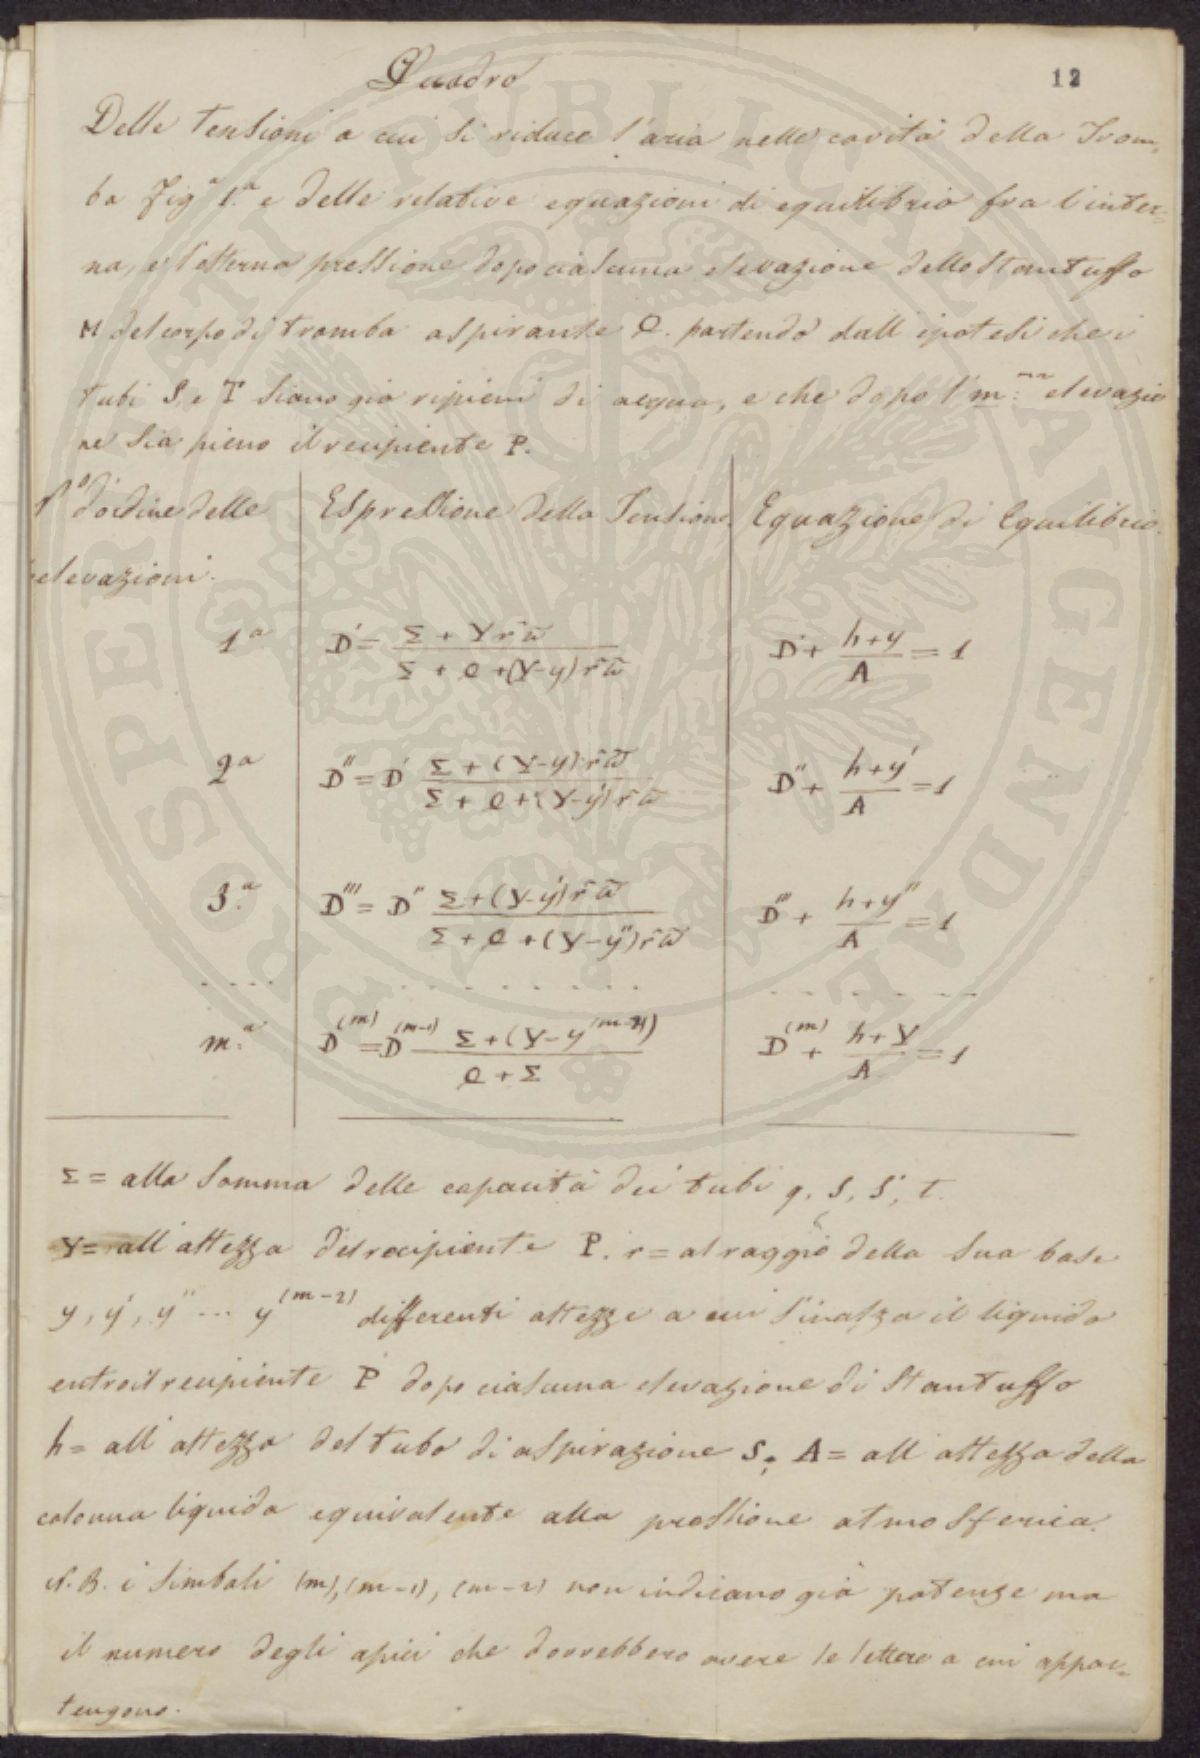 Quadro
12
Delle tensioni a cui si riduce l'aria nelle cavità della Trom=
ba Fig.a 1.a e delle relative equazioni di equilibrio fra l'inter=
na, e l'esterna pressione dopo ciascuna elevazione dello Stantuffo
M del corpo di tromba aspirante Q. partendo dall'ipotesi che i
tubi S, e T siano già ripieni di acqua, e che dopo l'm.ma elevazio
ne sia pieno il recipiente P.
N.o d'ordine delle | Espressione della Tensione | Equazione di Equilibrio.
elevazioni.
1a | D' = (Σ + Y r² ϖ) / (Σ + Q + (Y-y) r² ϖ) | D' + (h+y)/A = 1
2a | D'' = D' (Σ + (Y-y) r² ϖ) / (Σ + Q + (Y-y') r² ϖ) | D'' + (h+y')/A = 1
3.a | D''' = D'' (Σ + (Y-y') r² ϖ) / (Σ + Q + (Y-y'') r² ϖ) | D''' + (h+y'')/A = 1
. . . . | . . . . . . . . . | . . . . . . .
m.a | D^(m) = D^(m-1) (Σ + (Y-y^(m-2))) / (Q + Σ) | D^(m) + (h+Y)/A = 1
Σ = alla somma delle capacità dei tubi q, S, S', T.
Y = all'altezza del recipiente P. r = al raggio della sua base
y, y', y'' ... y^(m-2) differenti altezze a cui s'inalza il liquido
entro il recipiente P dopo ciascuna elevazione di Stantuffo
h = all'altezza del tubo di aspirazione S; A = all'altezza della
colonna liquida equivalente alla pressione atmosferica.
N.B. i simboli (m), (m-1), (m-2) non indicano già potenze ma
il numero degli apici che dovrebbero avere le lettere a cui appar=
tengono.
PROSPERITATI PUBLICAE AUGENDAE